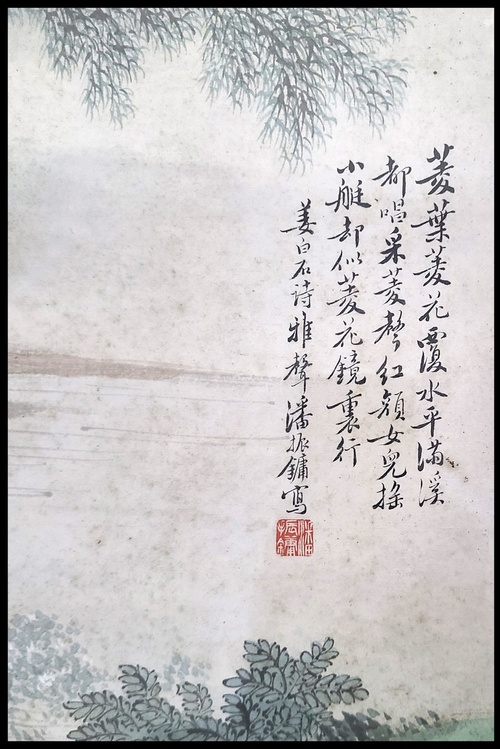 菱葉菱花覆水平滿溪
都唱采菱聲紅顏女兒搖
小艇却似菱花鏡裏行
姜白石诗雅聲潘振鏞寫